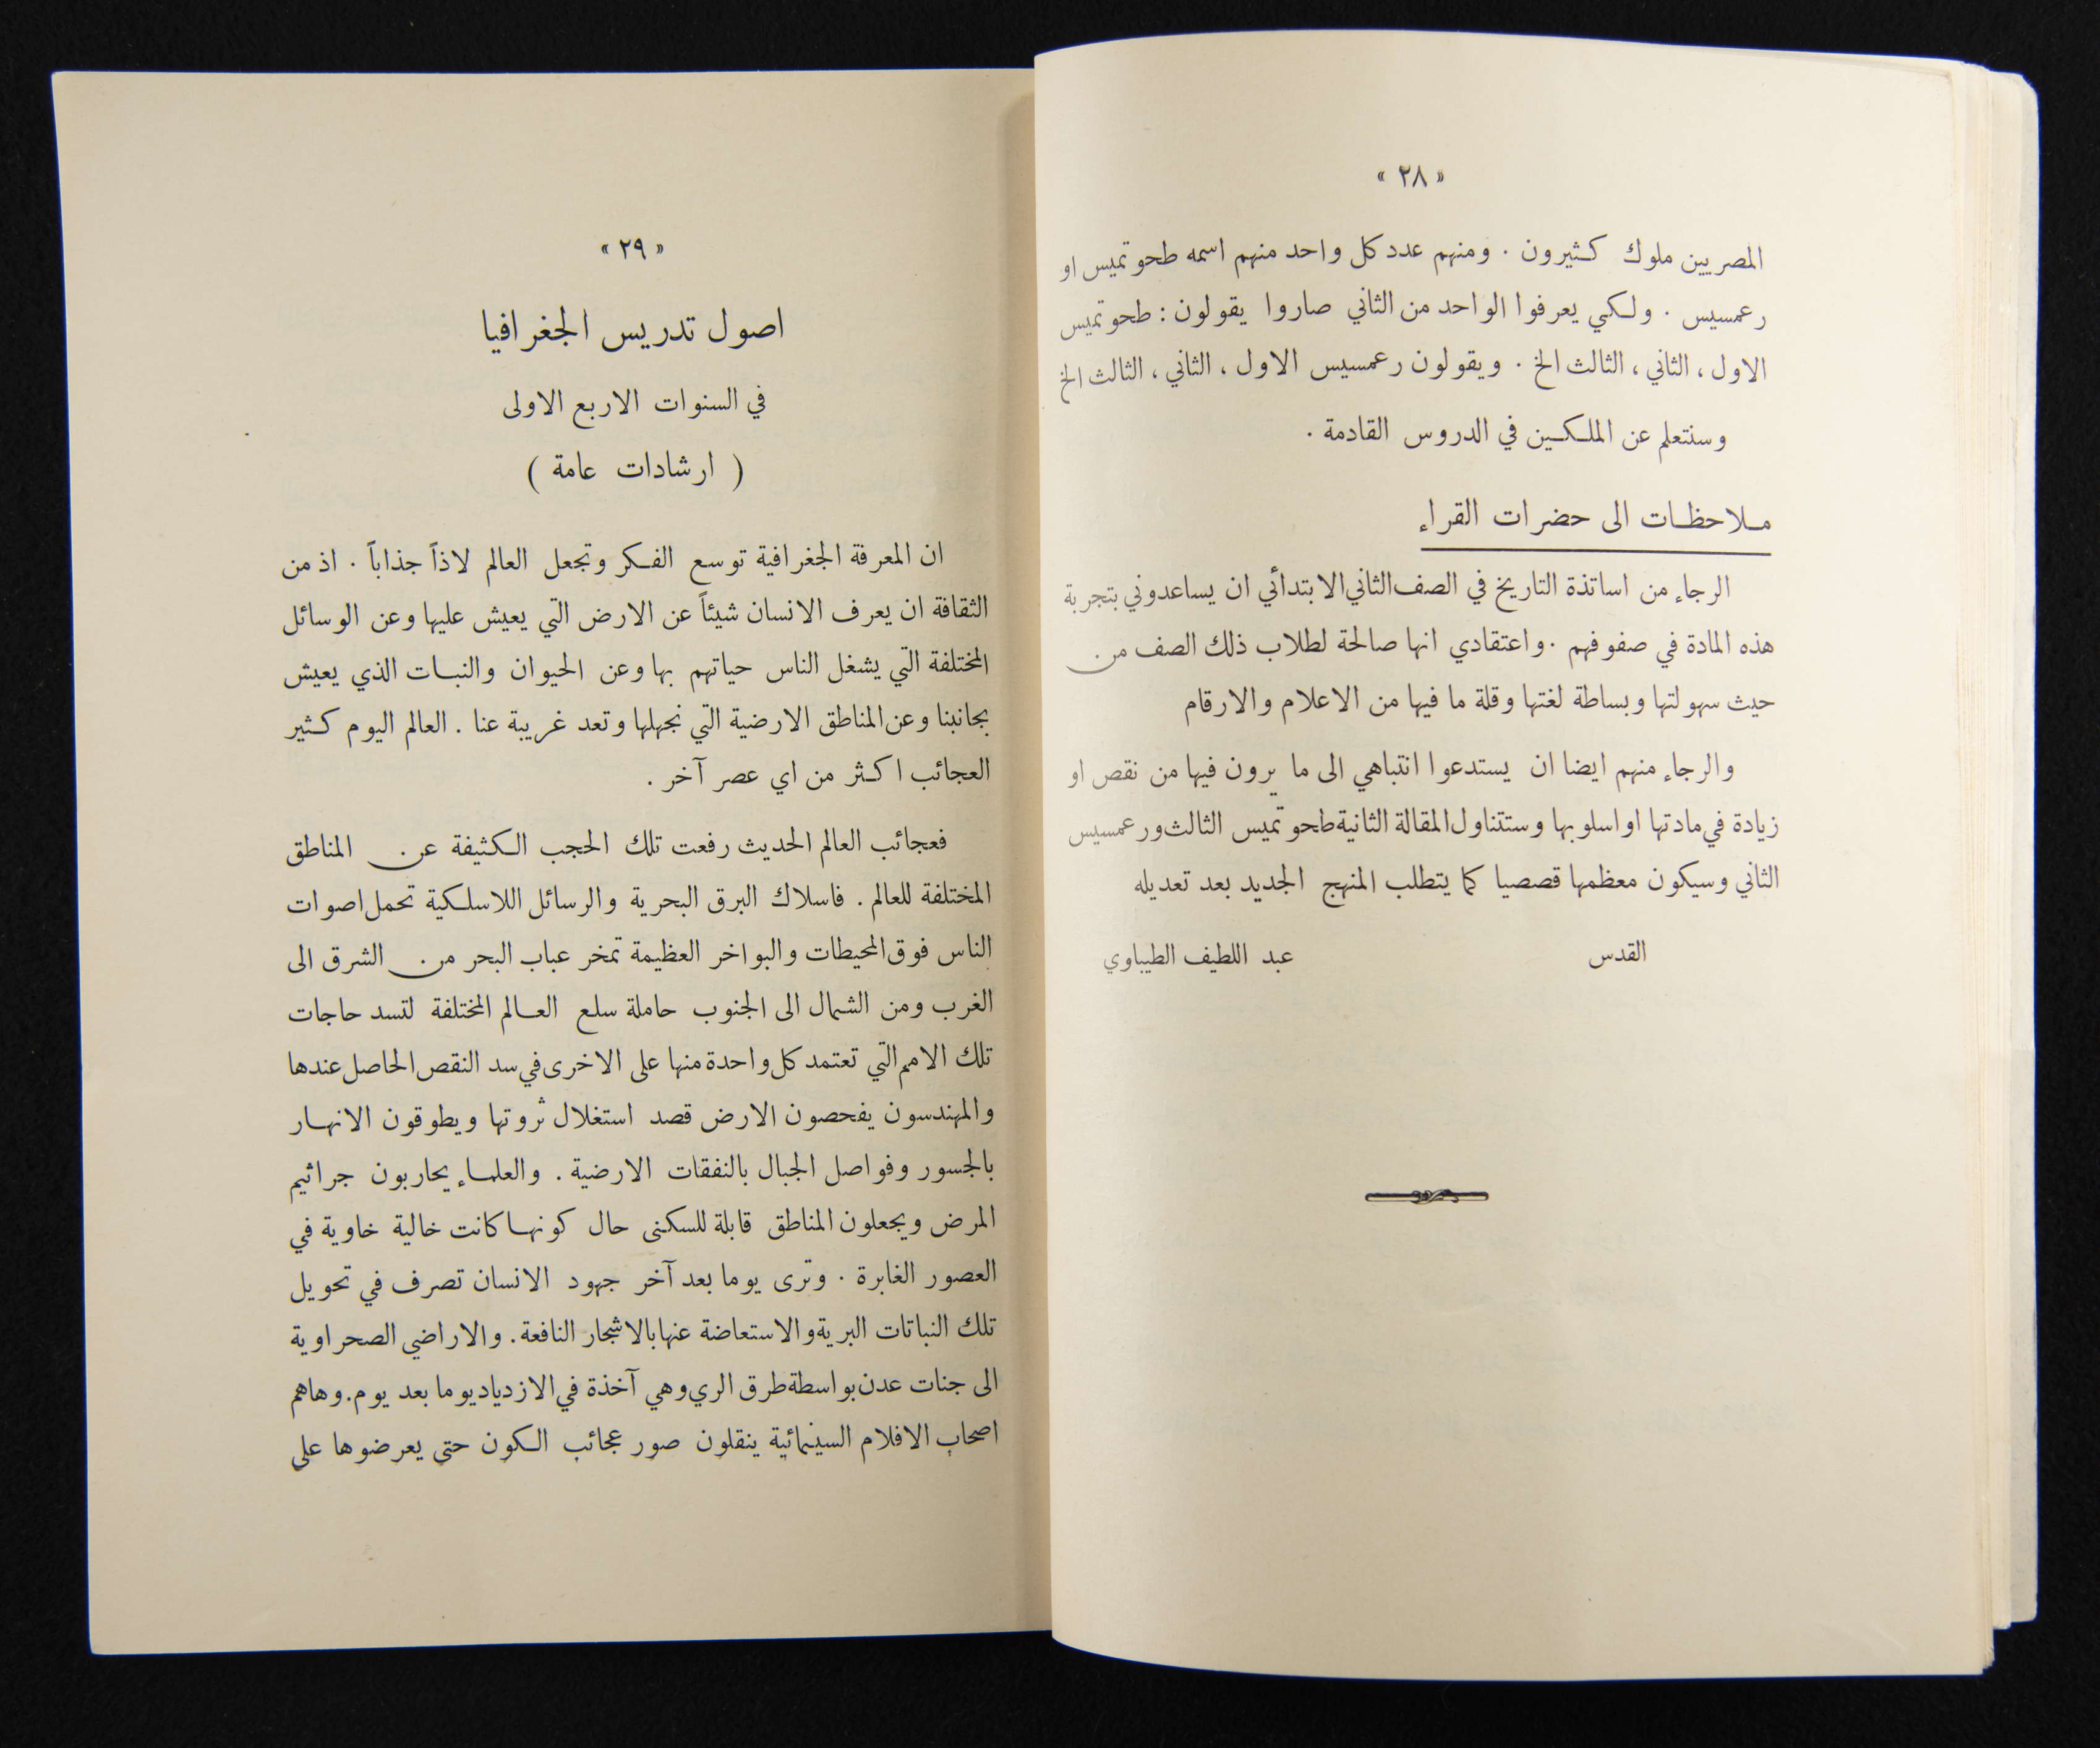 « ٢٨ »
المصريين ملوك كثيرون . ومنهم عدد كل واحد منهم اسمه طحوتميس او
رعمسيس . ولكي يعرفوا الواحد من الثاني صاروا يقولون : طحوتميس
الاول ، الثاني ، الثالث الخ . ويقولون رعمسيس الاول ، الثاني ، الثالث الخ
وسنتعلم عن الملكين في الدروس القادمة .
ملاحظات الى حضرات القراء
الرجاء من اساتذة التاريخ في الصف الثاني الابتدائي ان يساعدوني بتجربة
هذه المادة في صفوفهم . واعتقادي انها صالحة لطلاب ذلك الصف من
حيث سهولتها وبساطة لغتها وقلة ما فيها من الاعلام والارقام
والرجاء منهم ايضا ان يستدعوا انتباهي الى ما يرون فيها من نقص او
زيادة في مادتها او اسلوبها وستتناول المقالة الثانية طحوتميس الثالث ورعمسيس
الثاني وسيكون معظمها قصصيا كما يتطلب المنهج الجديد بعد تعديله
القدس عبد اللطيف الطيباوي
« ٢٩ »
اصول تدريس الجغرافيا
في السنوات الاربع الاولى
( ارشادات عامة )
ان المعرفة الجغرافية توسع الفكر وتجعل العالم لاذاً جذاباً . اذ من
الثقافة ان يعرف الانسان شيئاً عن الارض التي يعيش عليها وعن الوسائل
المختلفة التي يشغل الناس حياتهم بها وعن الحيوان والنبات الذي يعيش
بجانبنا وعن المناطق الارضية التي نجهلها وتعد غريبة عنا . العالم اليوم كثير
العجائب اكثر من اي عصر آخر .
فعجائب العالم الحديث رفعت تلك الحجب الكثيفة عن المناطق
المختلفة للعالم . فاسلاك البرق البحرية والرسائل اللاسلكية تحمل اصوات
الناس فوق المحيطات والبواخر العظيمة تمخر عباب البحر من الشرق الى
الغرب ومن الشمال الى الجنوب حاملة سلع العالم المختلفة لتسد حاجات
تلك الامم التي تعتمد كل واحدة منها على الاخرى في سد النقص الحاصل عندها
والمهندسون يفحصون الارض قصد استغلال ثروتها ويطوقون الانهار
بالجسور وفواصل الجبال بالنفقات الارضية . والعلماء يحاربون جراثيم
المرض ويجعلون المناطق قابلة للسكنى حال كونها كانت خالية خاوية في
العصور الغابرة . وترى يوما بعد آخر جهود الانسان تصرف في تحويل
تلك النباتات البرية والاستعاضة عنها بالاشجار النافعة . والاراضي الصحراوية
الى جنات عدن بواسطة طرق الري وهي آخذة في الازدياد يوما بعد يوم . وهاهم
اصحاب الافلام السينمائية ينقلون صور عجائب الكون حتى يعرضوها على